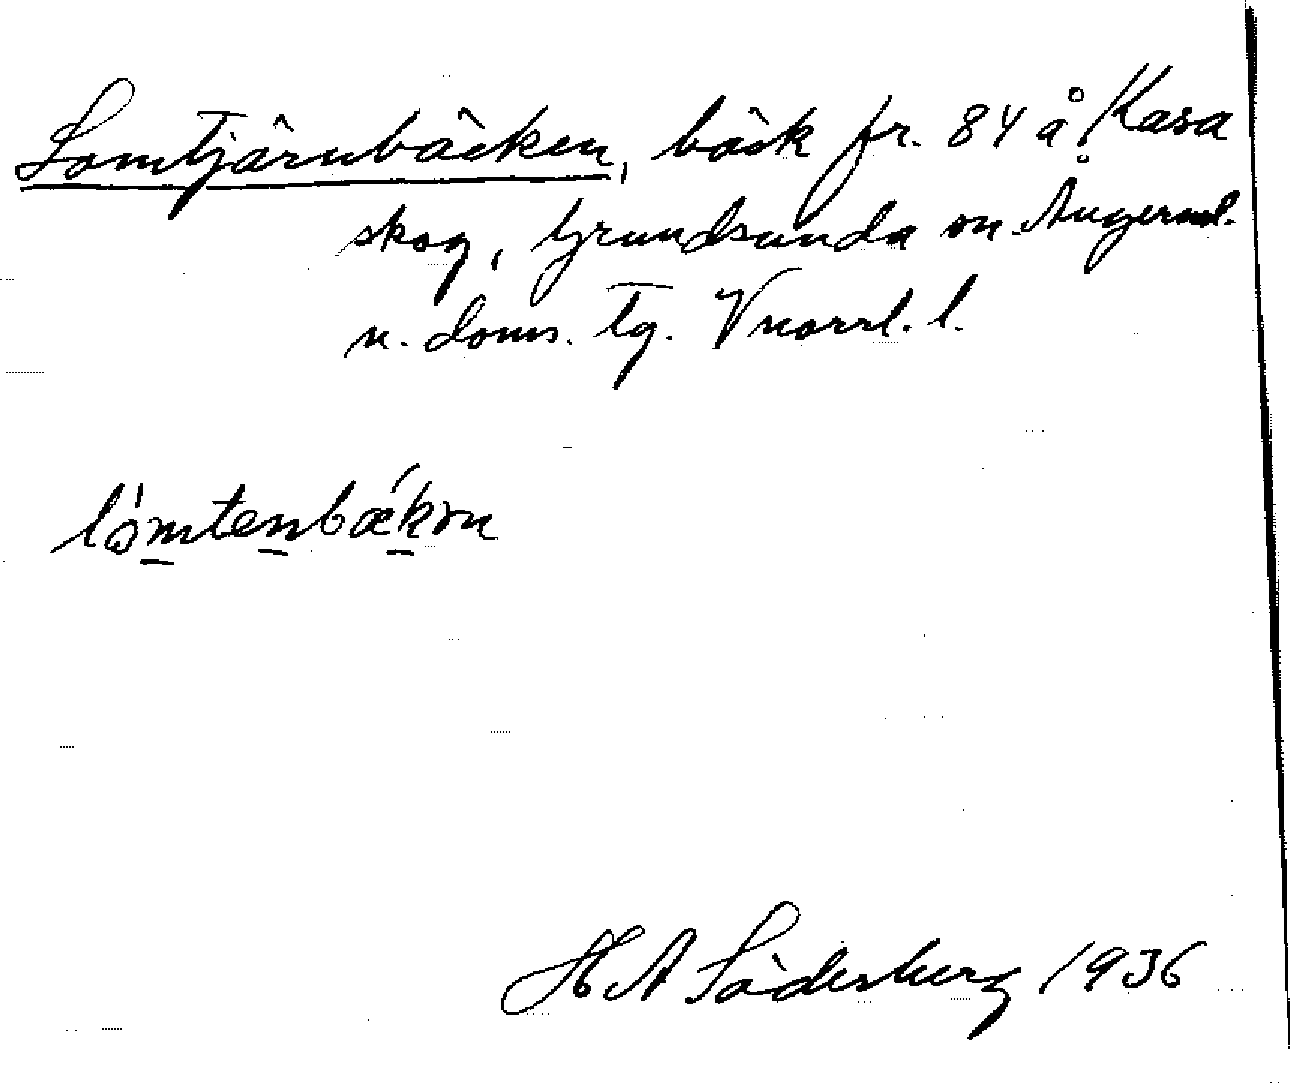 Lomtjärnbäcken, bäck fr. 84 å Kasa
skog, Grundsunda sn Ångerml.
n. doms. tg. Vnorrl. l.
lómtenbǽkən
H A Söderberg 1936